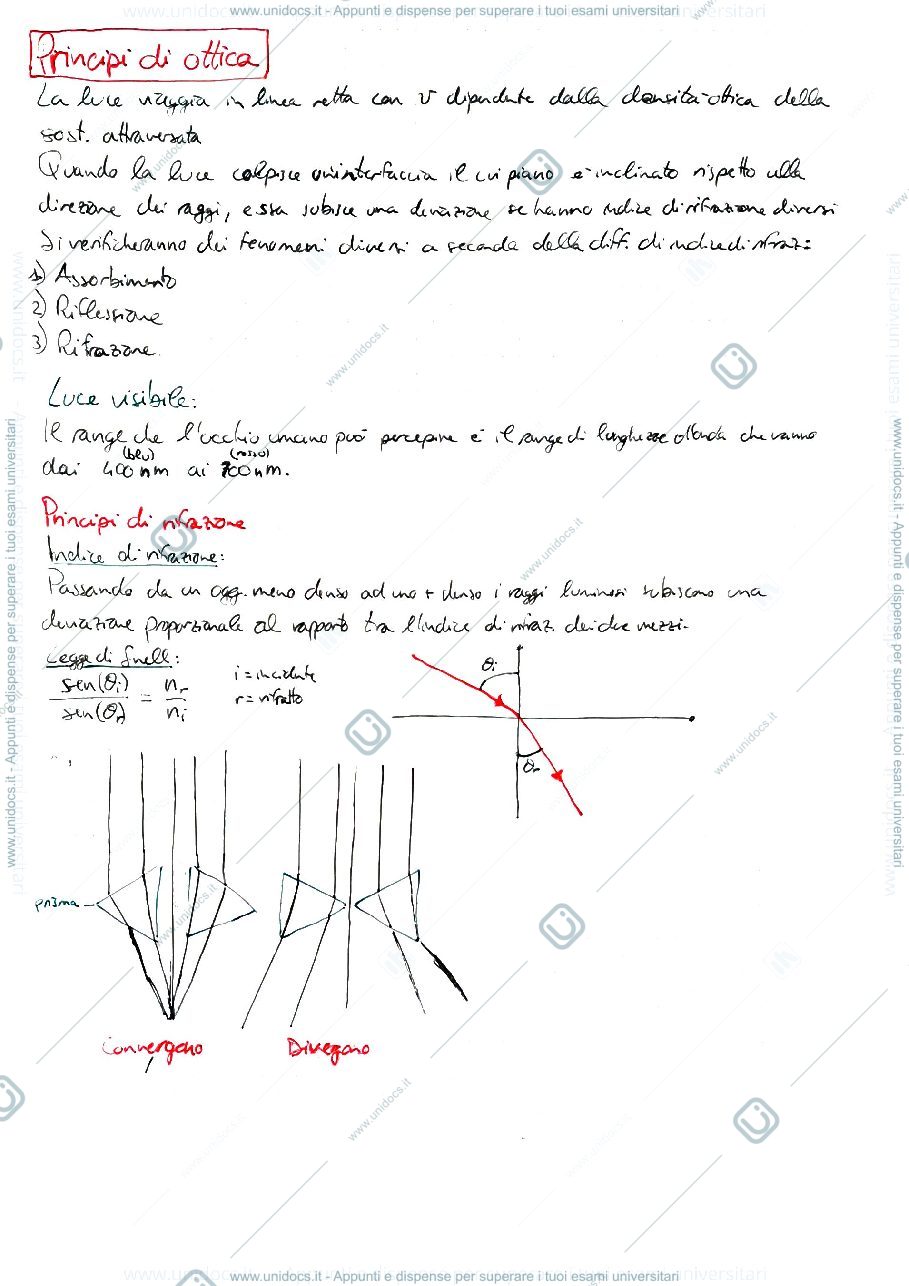 www.unidocs.it - Appunti e dispense per superare i tuoi esami universitari
Principi di ottica
La luce viaggia in linea retta con v dipendente dalla densità ottica della
sost. attraversata
Quando la luce colpisce un'interfaccia il cui piano è inclinato rispetto alla
direzione dei raggi, essa subisce una deviazione se hanno indice di rifrazione diversi
Si verificheranno dei fenomeni diversi a seconda della diff. di indice di rifraz:
1) Assorbimento
2) Riflessione
3) Rifrazione.
Luce visibile:
Il range che l'occhio umano può percepire è il range di lunghezze d'onda che vanno
(blu) (rosso)
dai 400 nm ai 700 nm.
Principi di rifrazione
Indice di rifrazione:
Passando da un ogg. meno denso ad uno + denso i raggi luminosi subiscono una
deviazione proporzionale al rapporto tra l'indice di rifraz. dei due mezzi.
Legge di Snell:
sen(θi) / sen(θr) = nr / ni
i = incidente
r = rifratto
θi
θr
prisma
Convergono
Divergono
www.unidocs.it - Appunti e dispense per superare i tuoi esami universitari